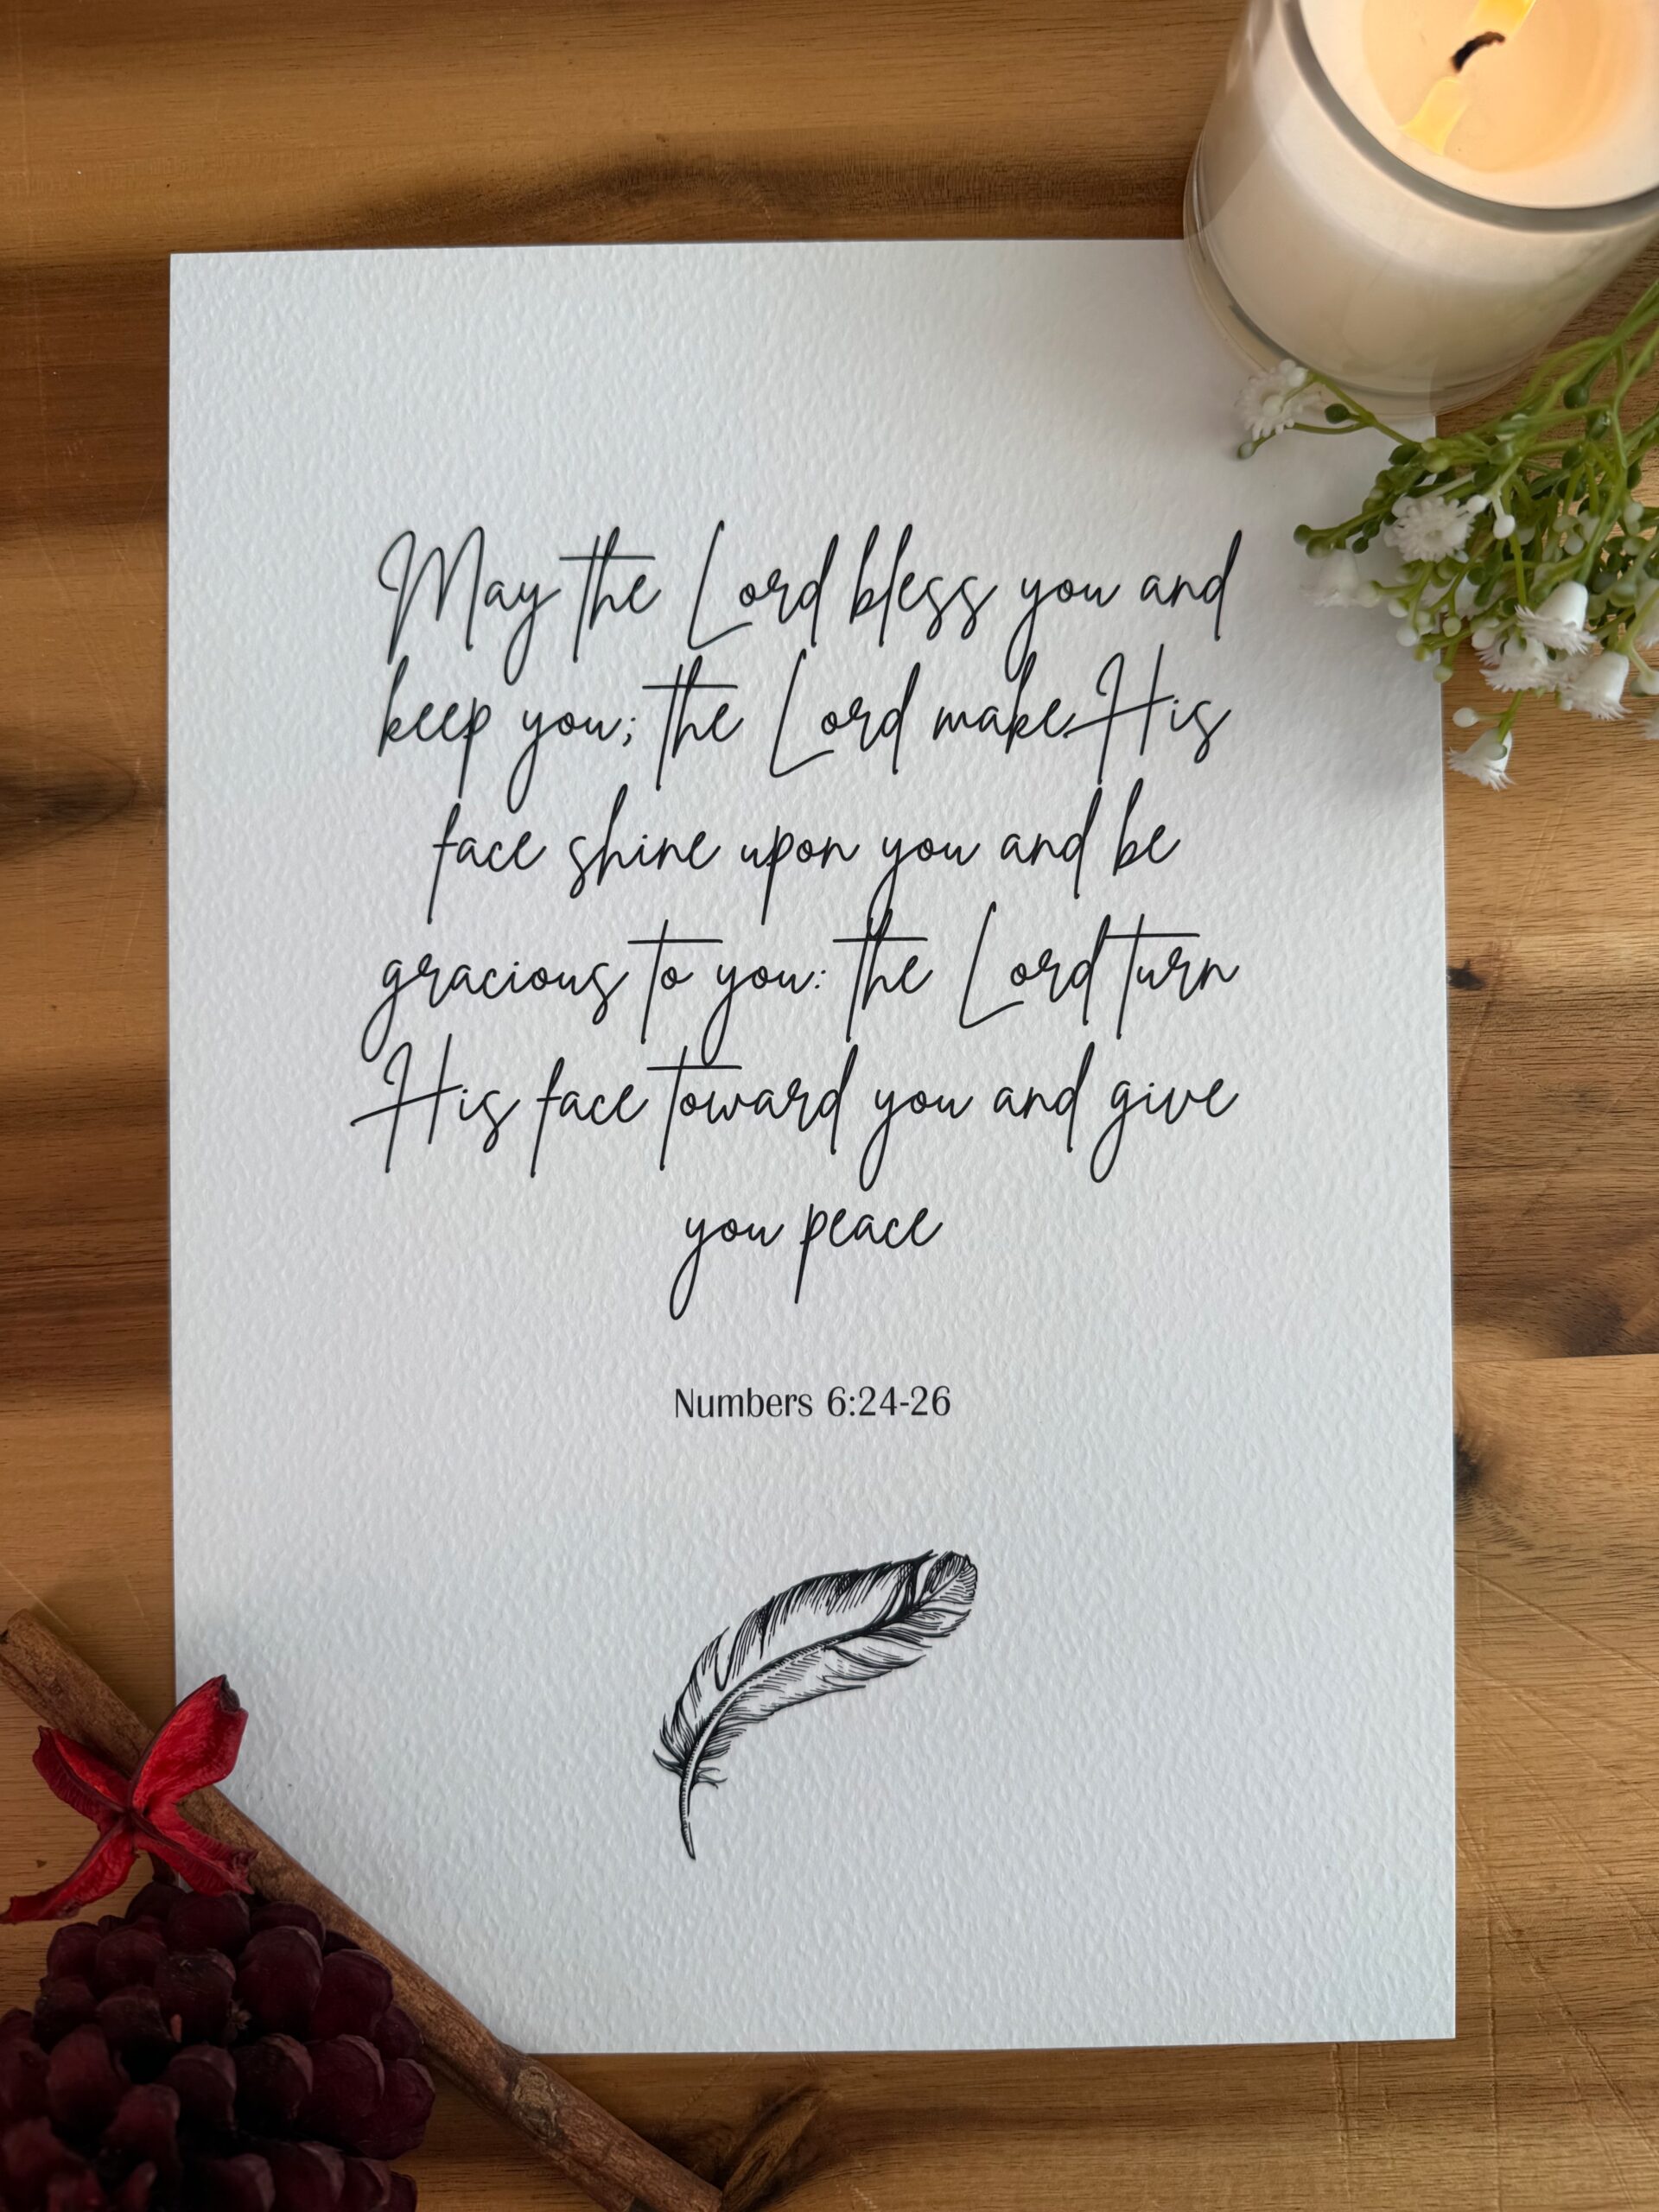 May the Lord bless you and
keep you; the Lord make His
face shine upon you and be
gracious to you: the Lord turn
His face toward you and give
you peace
Numbers 6:24-26